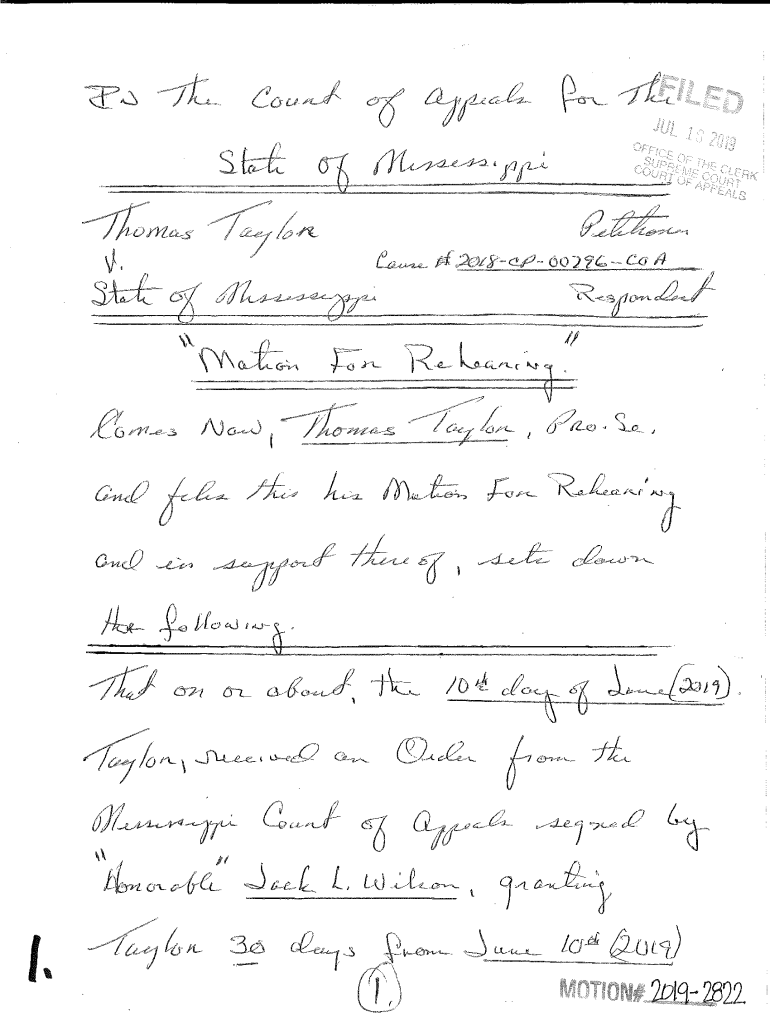 In The Court of Appeals for The
FILED
JUL 18 2019
OFFICE OF THE CLERK
SUPREME COURT
COURT OF APPEALS
State of Mississippi
Thomas Taylor Petitioner
v. Cause # 2018-CP-00796-COA
State of Mississippi Respondent
"Motion For Rehearing."
Comes Now, Thomas Taylor, Pro.Se.
and files this his Motion For Rehearing
and in support there of, sets down
the following.
That on or about, the 10th day of June (2019).
Taylor, received an Order from the
Mississippi Court of Appeals signed by
"Honorable" Jack L. Wilson, granting
Taylor 30 days from June 10th (2019)
1.
1.
MOTION# 2019-2822